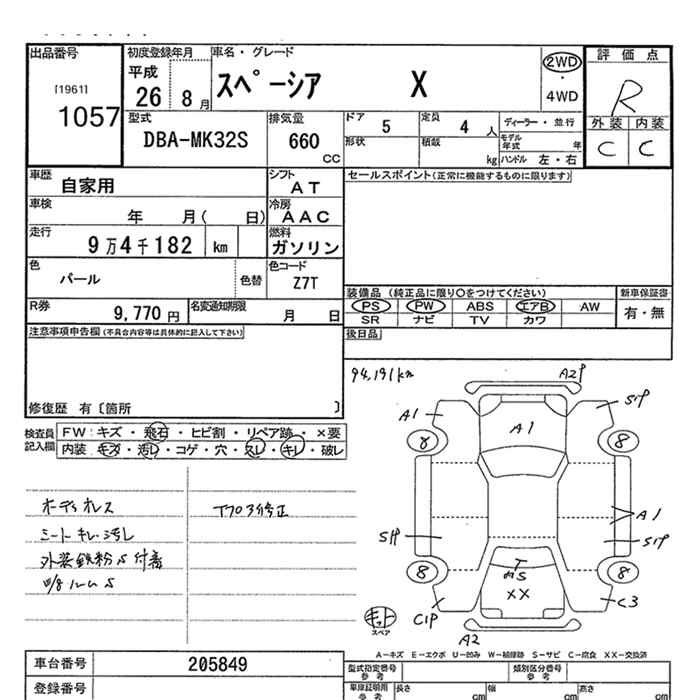 出品番号
[1961]
1057
初度登録年月
平成
26
8 月
車名・グレード
スペーシア X
2WD
・
4WD
評価点
R
外装 内装
C C
型式
DBA-MK32S
排気量
660
CC
ドア
5
定員
4 人
ディーラー・並行
形状
積載
kg
モデル年式 年
ハンドル 左・右
車歴
自家用
シフト
AT
セールスポイント(正常に機能するものに限ります)
車検
年 月( 日)
冷房
AAC
走行
9万4千182 km
燃料
ガソリン
色
パール
色替
色コード
Z7T
装備品 (純正品に限り○をつけてください)
新車保証書
PS PW ABS エアB AW
有・無
SR ナビ TV カワ
R券
9,770 円
名変通知期限
月 日
後日品
注意事項申告欄(不具合内容等は具体的に記入して下さい)
94,191km
修復歴 有〔箇所 〕
検査員記入欄
FW:キズ・飛石・ヒビ割・リペア跡・×要
内装:キズ・汚レ・コゲ・穴・スレ・キレ・破レ
オーディオレス
シートキレ・汚レ
外装鉄粉S付着
A2P
A1
S1P
A1
8
8
A1
S1P
S1P
8
8
T
XX
C1P
C3
A2
キット
スペア
A-キズ E-エクボ U-凹み W-補修跡 S-サビ C-腐食 XX-交換済
車台番号
205849
登録番号
型式指定番号
参考
類別区分番号
参考
車庫証明用
参考
長さ
cm
幅
cm
高さ
cm